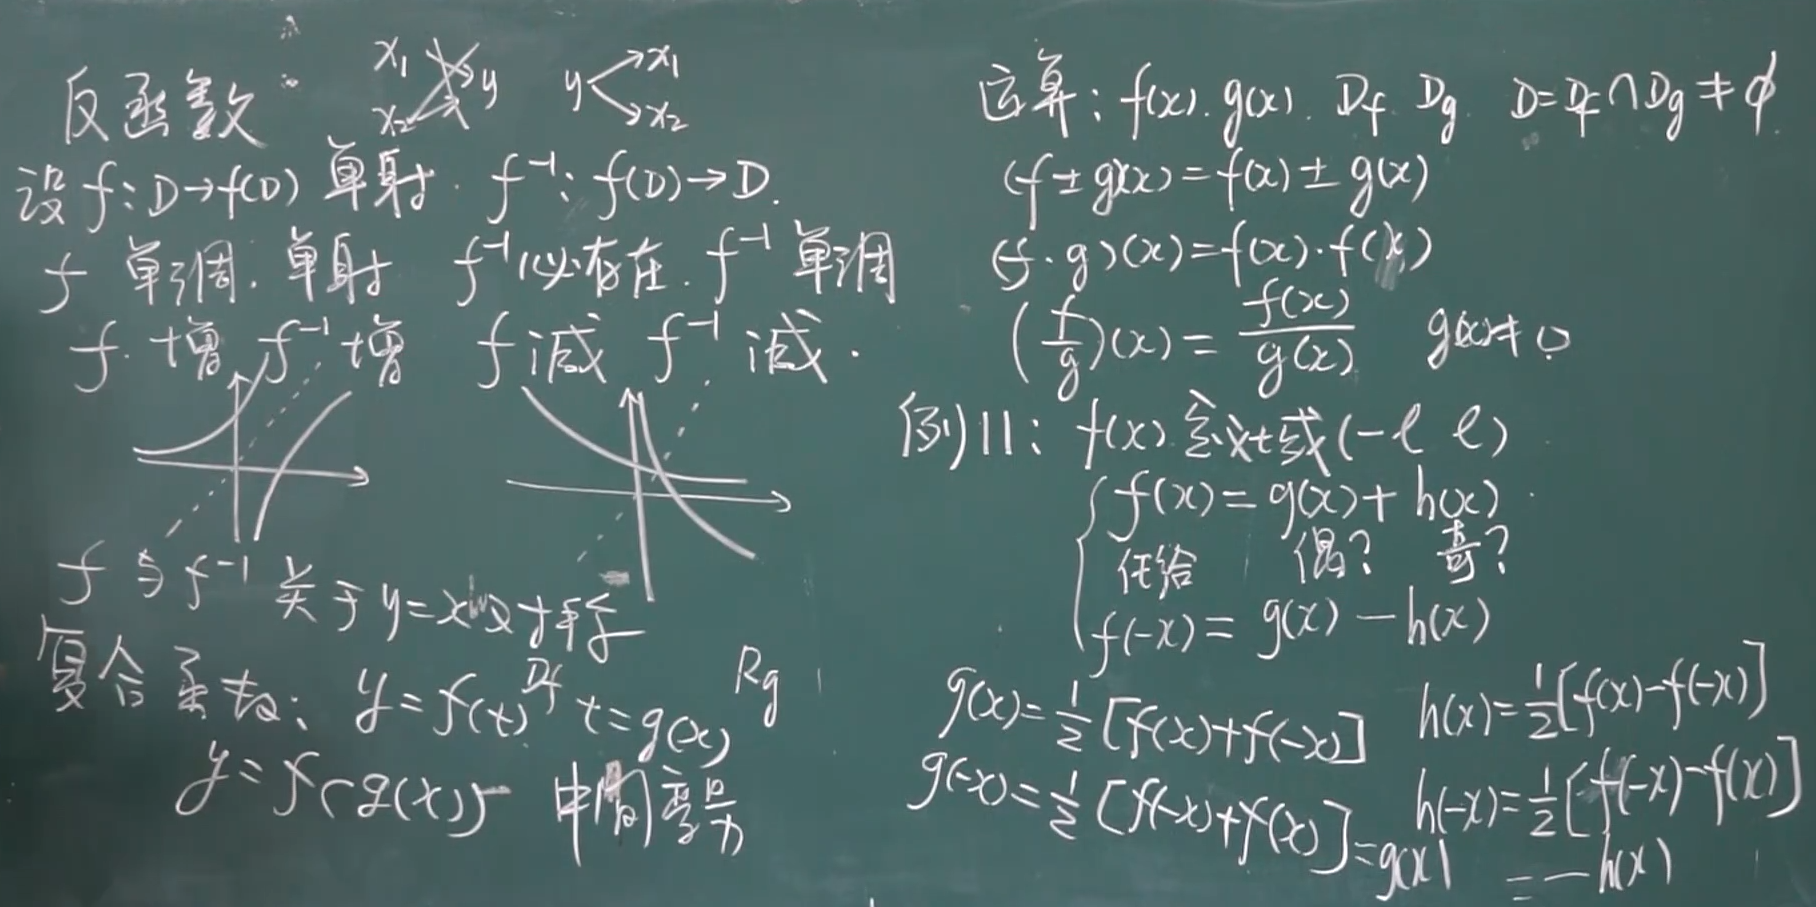 反函数: x₁ x₂ y y x₁ x₂
设 f:D→f(D) 单射. f⁻¹: f(D)→D.
f 单调. 单射 f⁻¹必存在. f⁻¹单调
f.增 f⁻¹增 f减 f⁻¹减.
f与f⁻¹关于y=x对称
复合函数: y=f(t) Df t=g(x) Rg
y=f(g(x)) 中间变量
运算: f(x).g(x). Df Dg. D=Df∩Dg≠ϕ.
(f±g)(x)=f(x)±g(x)
(f·g)(x)=f(x)·f(x)
(f/g)(x)=f(x)/g(x) g(x)≠0
例11: f(x).定义域(-l l)
f(x)=g(x)+h(x)
任给 偶? 奇?
f(-x)=g(x)-h(x)
g(x)=1/2[f(x)+f(-x)] h(x)=1/2[f(x)-f(-x)]
g(-x)=1/2[f(-x)+f(x)]=g(x) h(-x)=1/2[f(-x)-f(x)]
=-h(x)